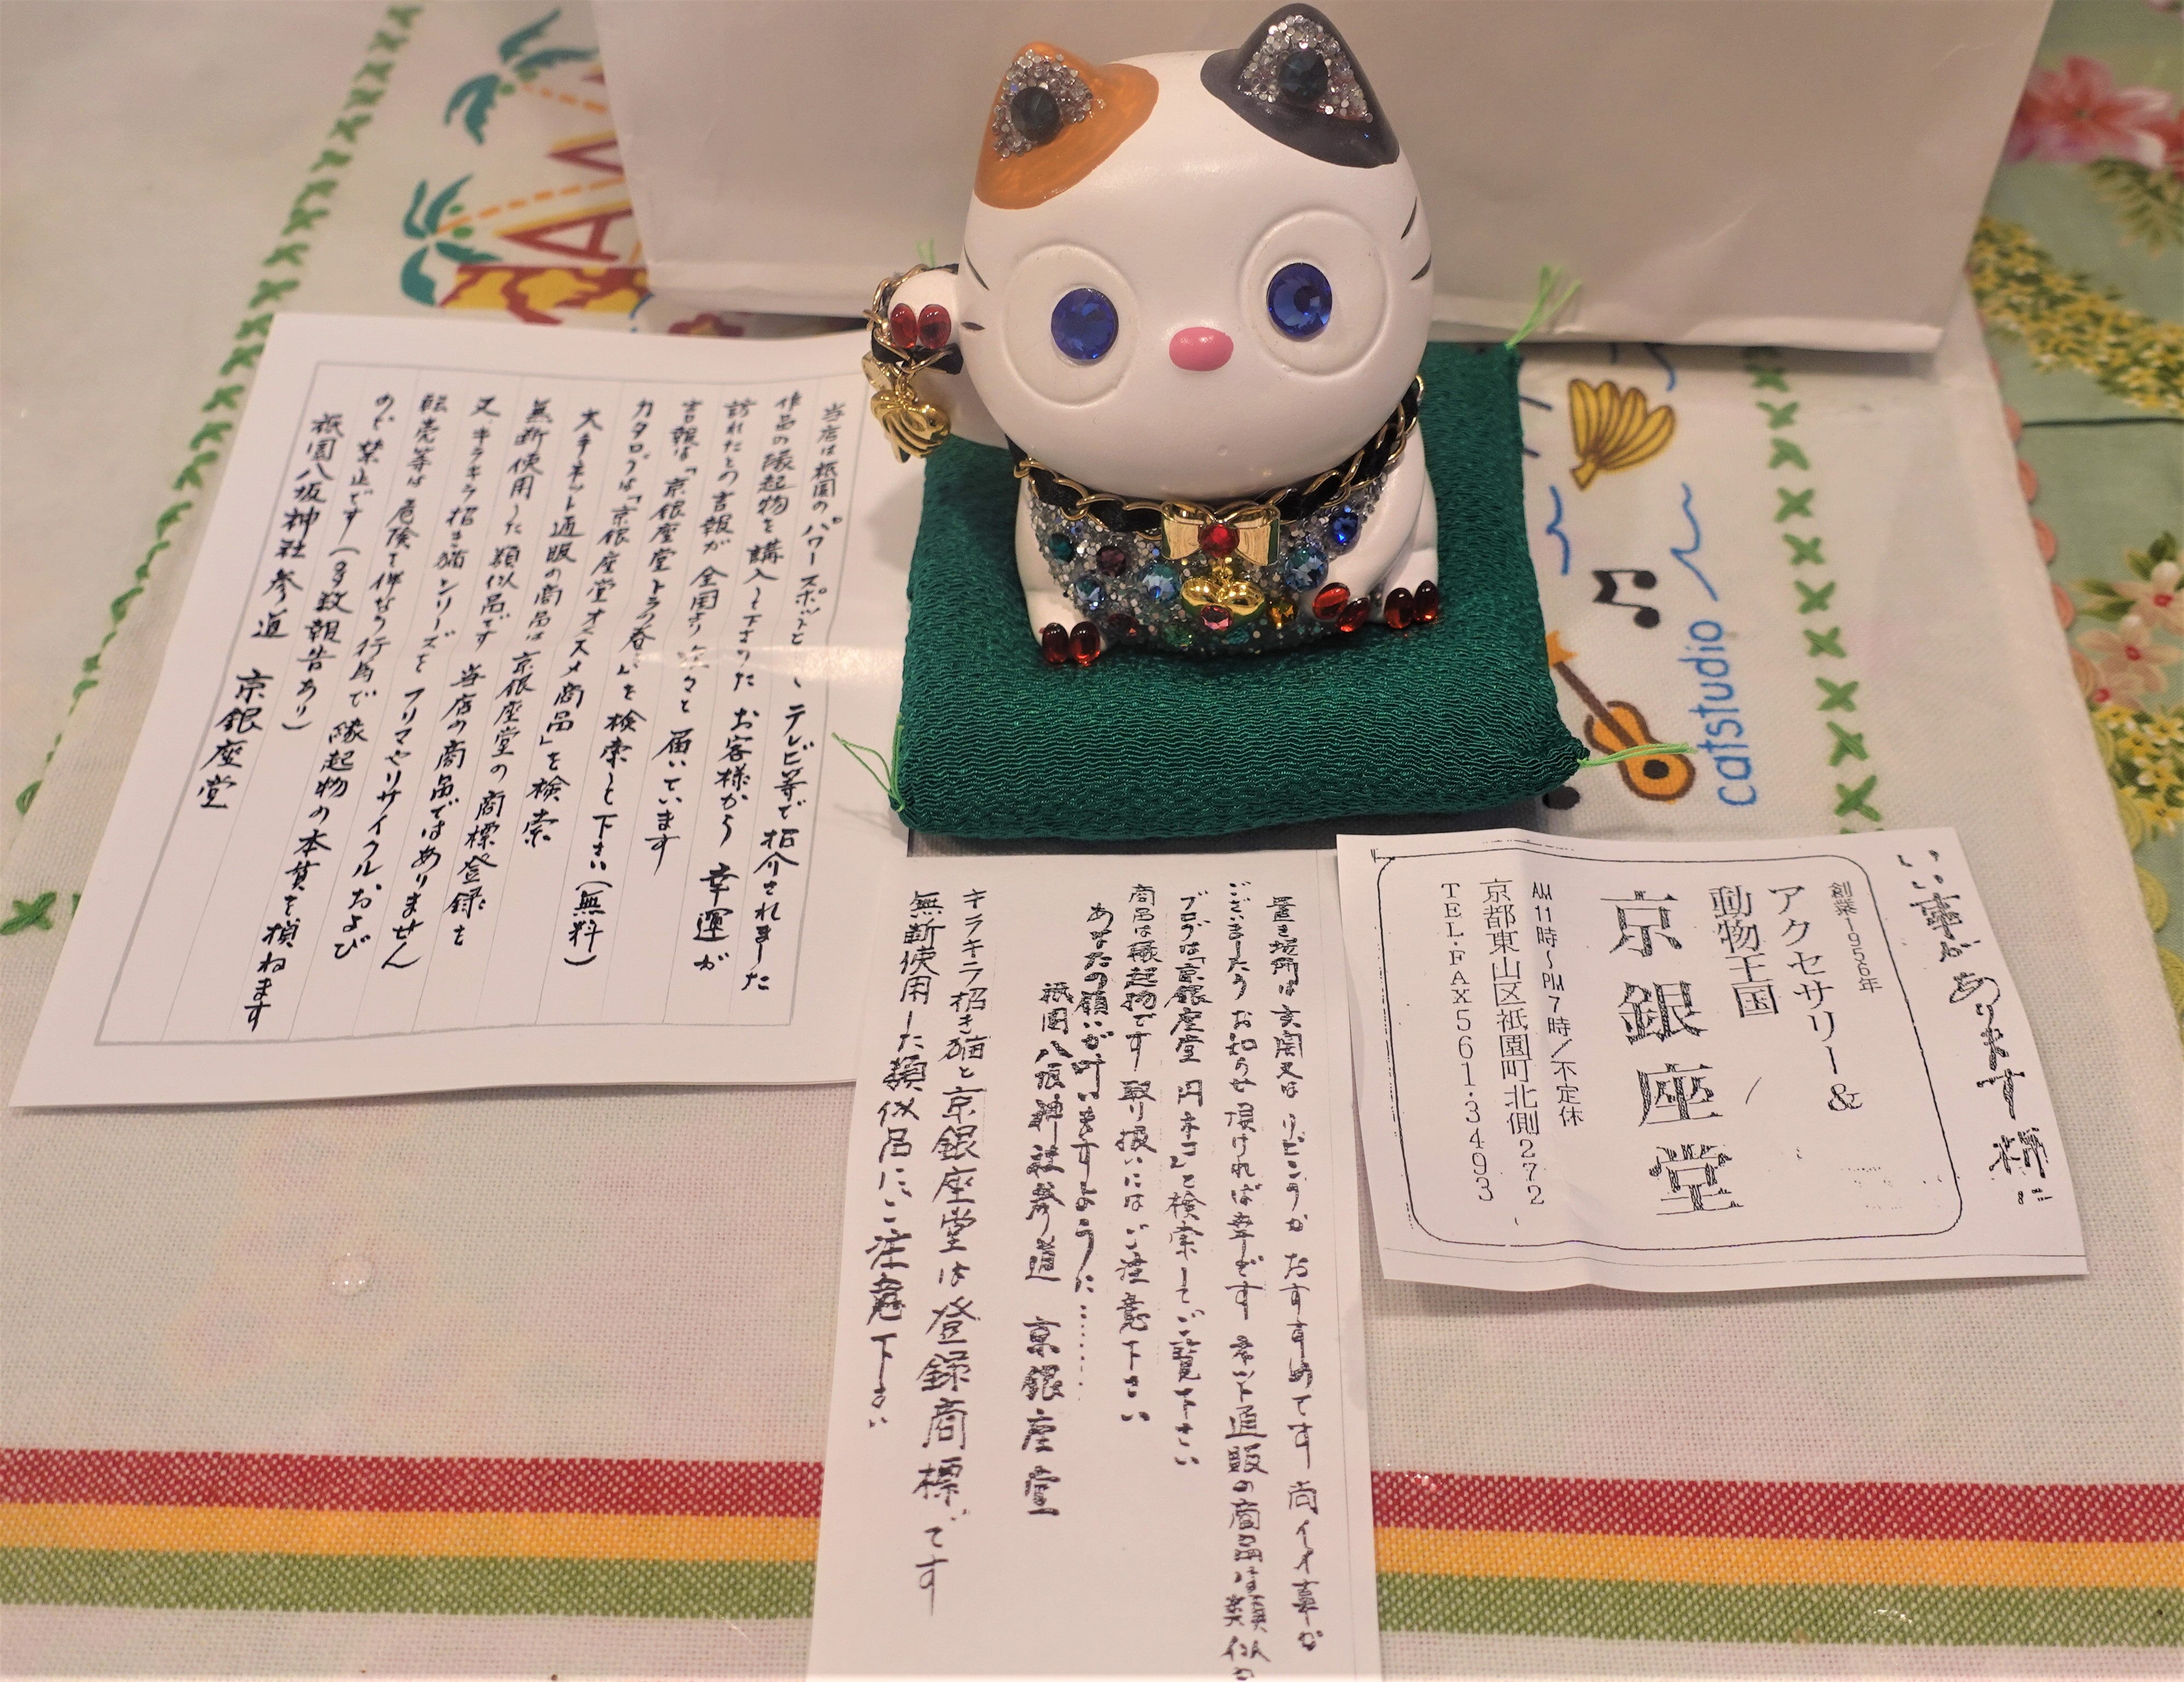 当店は祇園のパワースポットとしテレビ等で紹介されました
作品の縁起物を購入して下さったお客様から幸運が
訪れたとの吉報が全国より次々と届いています
吉報は「京銀座堂トラの巻」を検索して下さい(無料)
カタログは「京銀座堂オススメ商品」を検索
大手ネット通販の商品は京銀座堂の商標登録を
無断使用した類似品です 当店の商品ではありません
又、キラキラ招き猫シリーズをフリマやリサイクルおよび
転売等は危険で伴なう行為で縁起物の本質を損ねます
ので禁止です(多数報告あり)
祇園八坂神社参道 京銀座堂
置き場所は玄関又はリビングがおすすめです 尚イイ事が
ございましたらお知らせ頂ければ幸です ネット通販の商品は類似の
ブログは「京銀座堂 円ネコ」と検索してご覧下さい
商品は縁起物です 取り扱いにはご注意下さい
あなたの願いが叶いますように‥‥‥
祇園八坂神社参道 京銀座堂
キラキラ招き猫と京銀座堂は登録商標です
無断使用した類似品にご注意下さい
いい事があります様に
創業1956年
アクセサリー&
動物王国
京銀座堂
AM11時〜PM7時/不定休
京都東山区祇園町北側272
TEL・FAX561・3493
catstudio